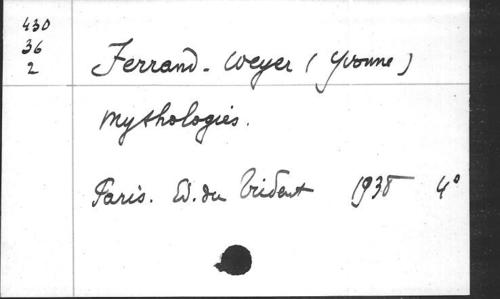 430
36
2
Ferrand-Weyer (Yvonne)
Mythologies.
Paris. Ed. du Trident 1938 4°